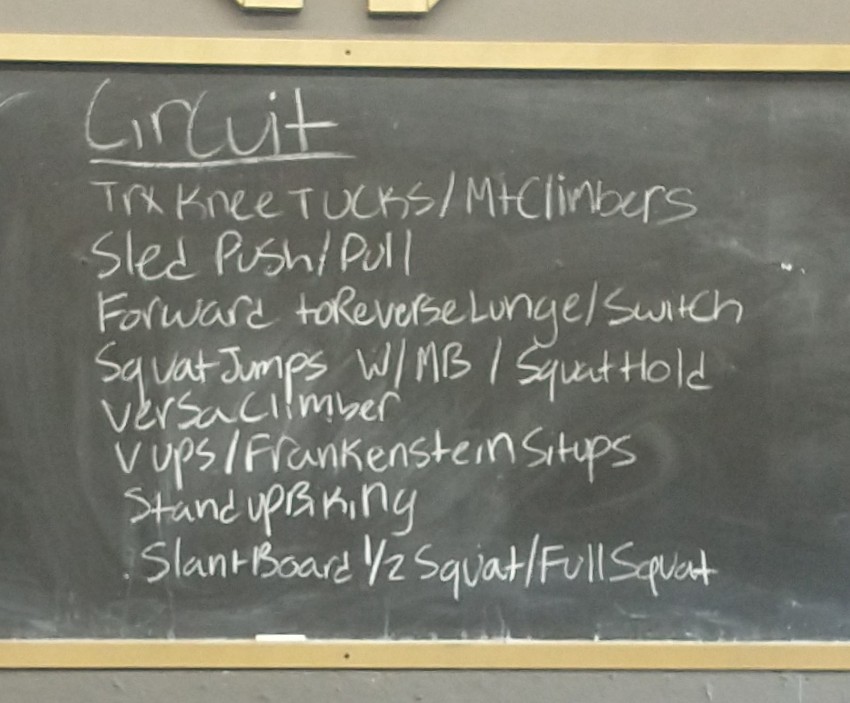 Circuit
Trx Knee Tucks/Mt Climbers
Sled Push/Pull
Forward to Reverse Lunge/Switch
Squat Jumps W/MB / Squat Hold
Versa Climber
V ups/Frankenstein Situps
Stand up Biking
Slant Board 1/2 Squat/Full Squat